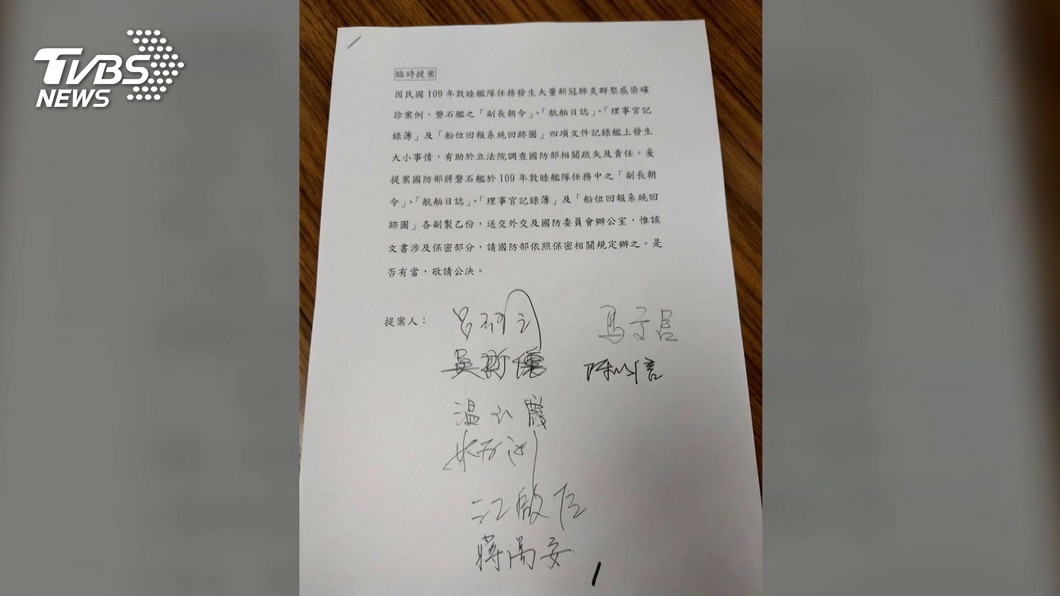 TVBS
NEWS
臨時提案
因民國 109 年敦睦艦隊任務發生大量新冠肺炎群聚感染確
診案例，磐石艦之「副長朝令」、「航舶日誌」、「理事官記
錄簿」及「船位回報系統回跡圖」四項文件記錄艦上發生
大小事情，有助於立法院調查國防部相關疏失及責任。爰
提案國防部將磐石艦於 109 年敦睦艦隊任務中之「副長朝
令」、「航舶日誌」、「理事官記錄簿」及「船位回報系統回
跡圖」各副製乙份，送交外交及國防委員會辦公室，惟該
文書涉及保密部分，請國防部依照保密相關規定辦之。是
否有當，敬請公決。
提案人：
吳斯懷
陳以信
溫玉霞
江啟臣
蔣萬安